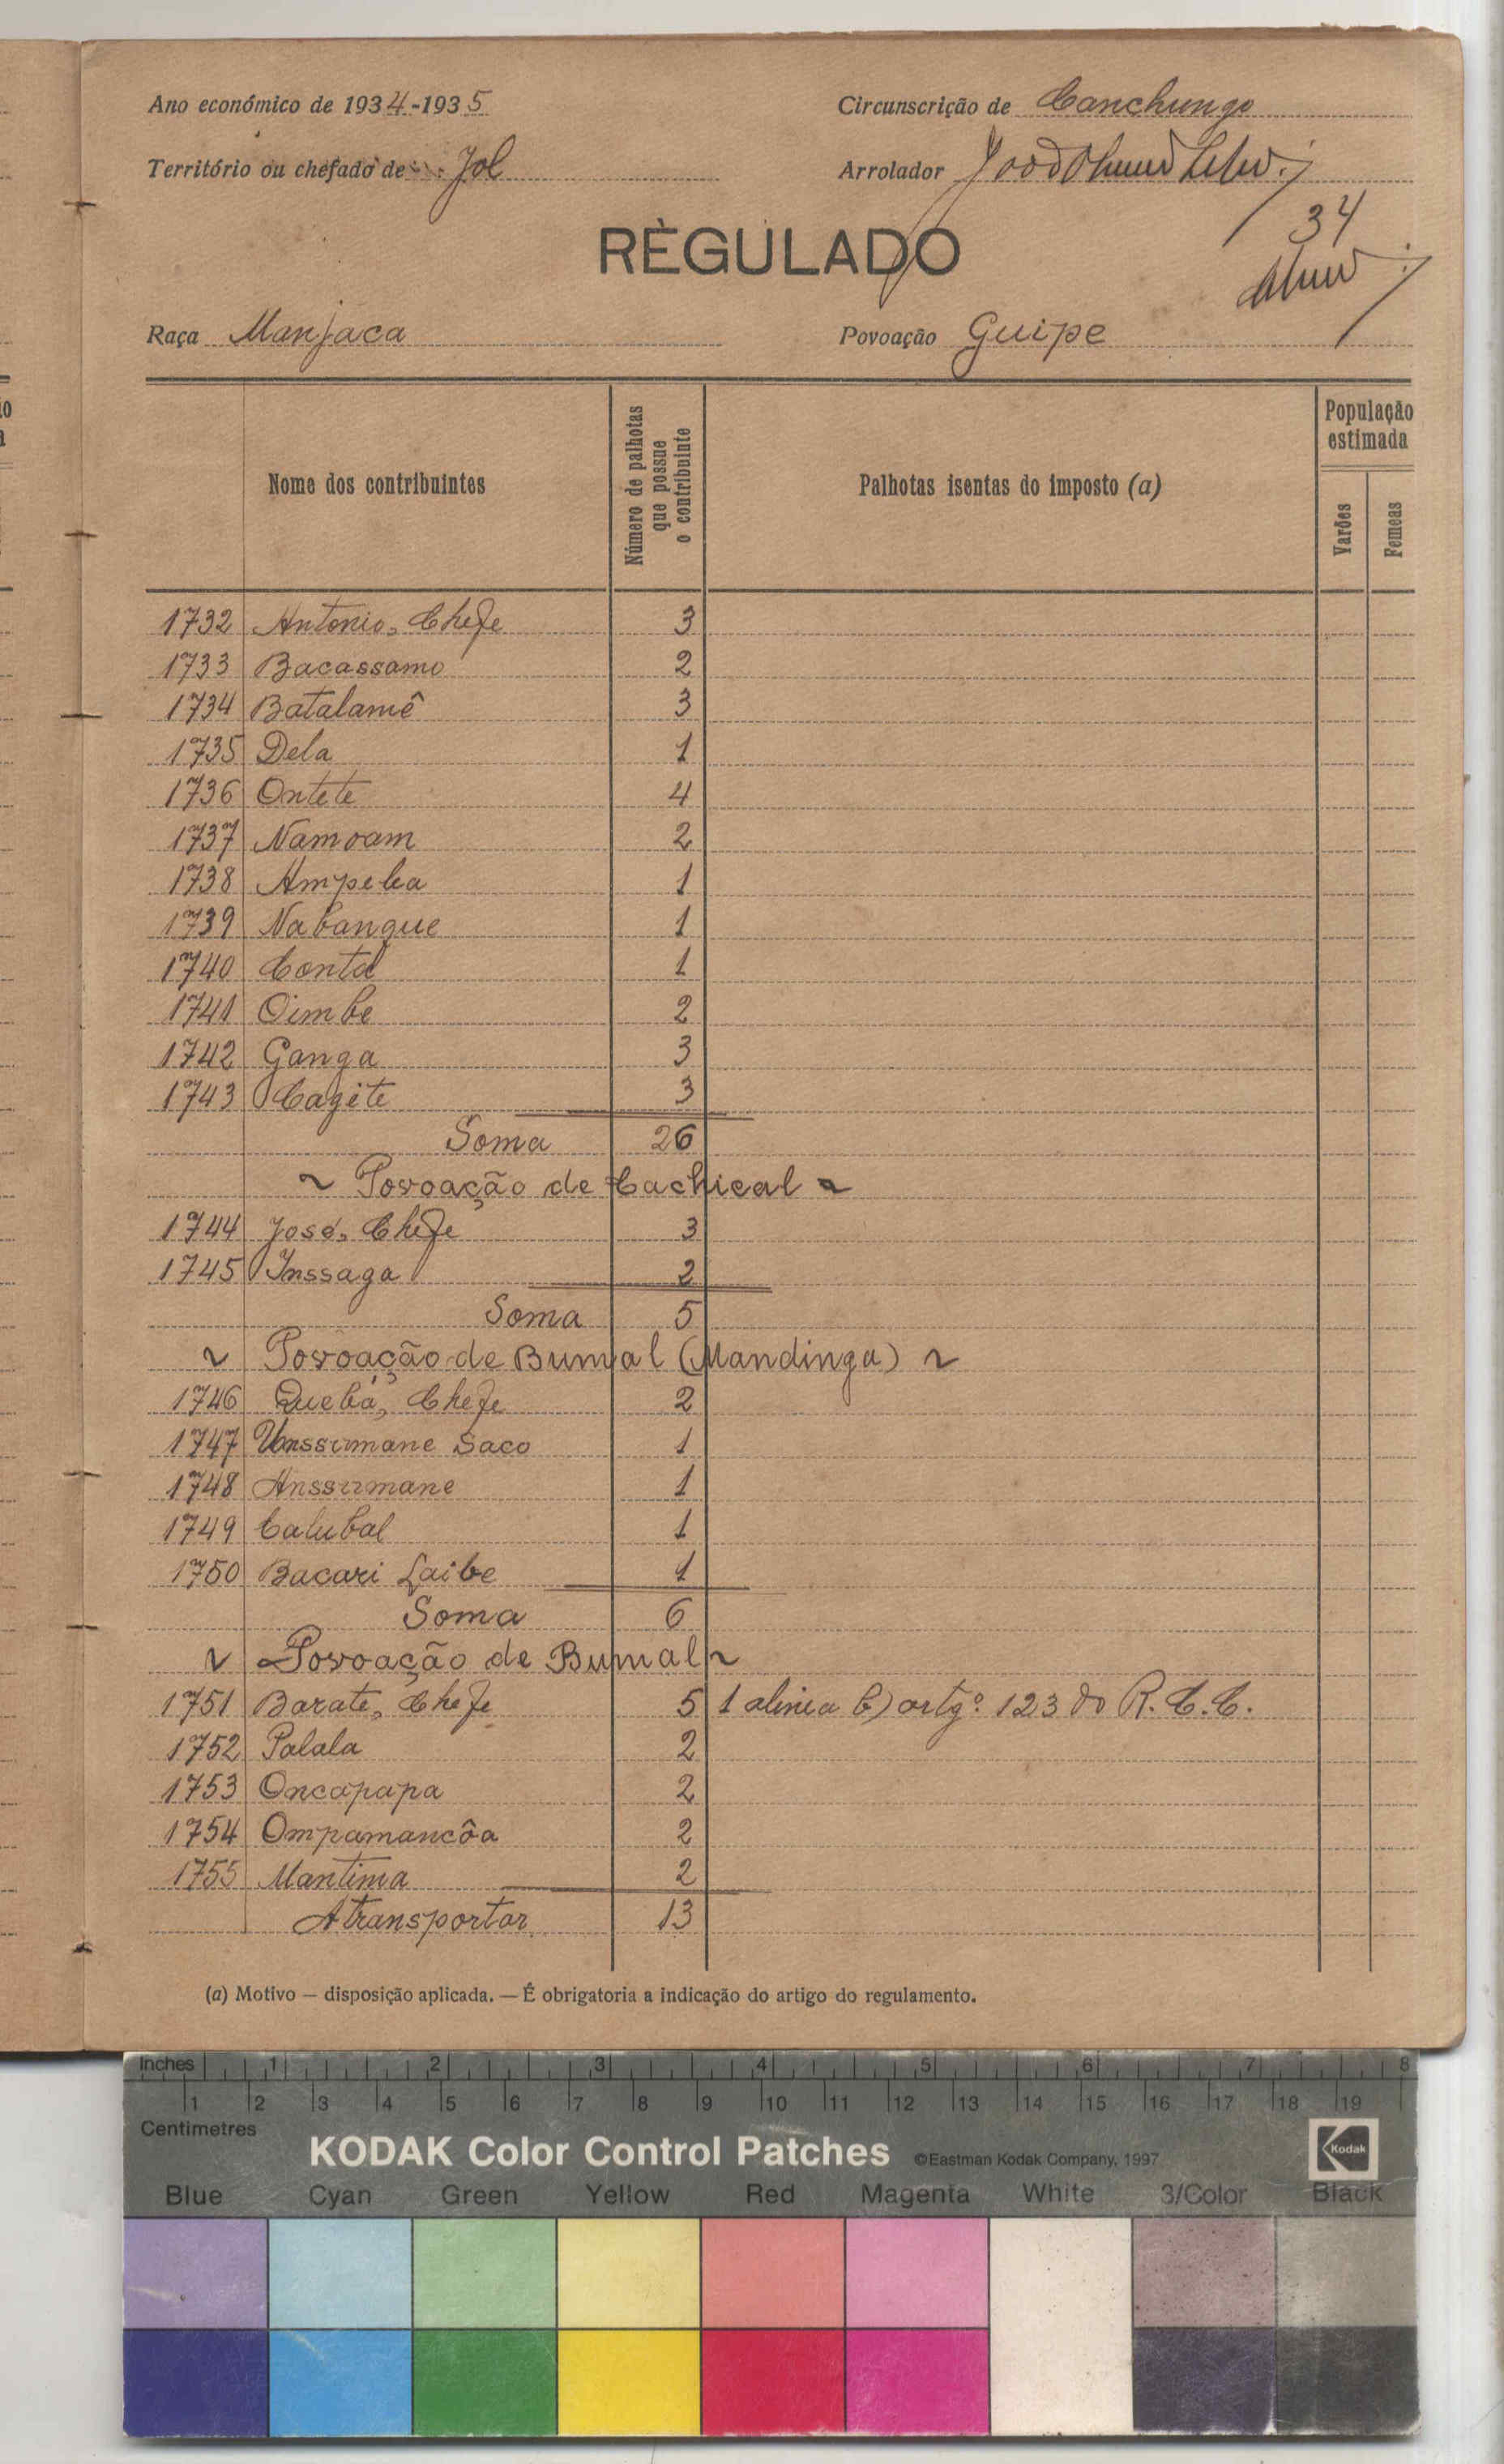 Ano económico de 1934-1935
Circunscrição de Canchungo
Território ou chefado de Jol
Arrolador
34
REGULADO
Raça Manjaca
Povoação Guipe
Nome dos contribuintes
Número de palhotas que possue o contribuinte
Palhotas isentas do imposto (a)
População estimada
Varões
Femeas
1732 Antonio, Chefe 3
1733 Bacassamo 2
1734 Batalamê 3
1735 Dela 1
1736 Ontete 4
1737 Namoam 2
1738 Ampeba 1
1739 Nabangue 1
1740 Contá 1
1741 Oimbe 2
1742 Ganga 3
1743 Cagite 3
Soma 26
~ Povoação de Cachical ~
1744 José, Chefe 3
1745 Inssaga 2
Soma 5
~ Povoação de Bumal (Mandinga) ~
1746 Quebá, Chefe 2
1747 Unssumane Saco 1
1748 Anssumane 1
1749 Calubal 1
1750 Bacari Laibe 1
Soma 6
~ Povoação de Bumal ~
1751 Barate, Chefe 5 1 alinea b) artgº 123 do R.C.C.
1752 Palala 2
1753 Oncapapa 2
1754 Ompamancôa 2
1755 Mantima 2
A transportar 13
(a) Motivo — disposição aplicada. — É obrigatoria a indicação do artigo do regulamento.
Inches 1 2 3 4 5 6 7 8
1 2 3 4 5 6 7 8 9 10 11 12 13 14 15 16 17 18 19
Centimetres
KODAK Color Control Patches ©Eastman Kodak Company, 1997 Kodak
Blue Cyan Green Yellow Red Magenta White 3/Color Black